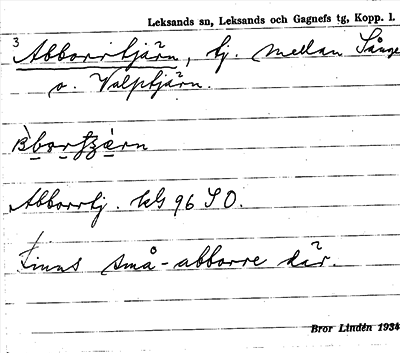 Leksands sn, Leksands och Gagnefs tg, Kopp. l.
3
Abborrtjärn, tj. mellan Långe
o. Valptjärn.
Abborrtj. kbl 96 SO.
Finns små-abborre där.
Bror Lindén 1934